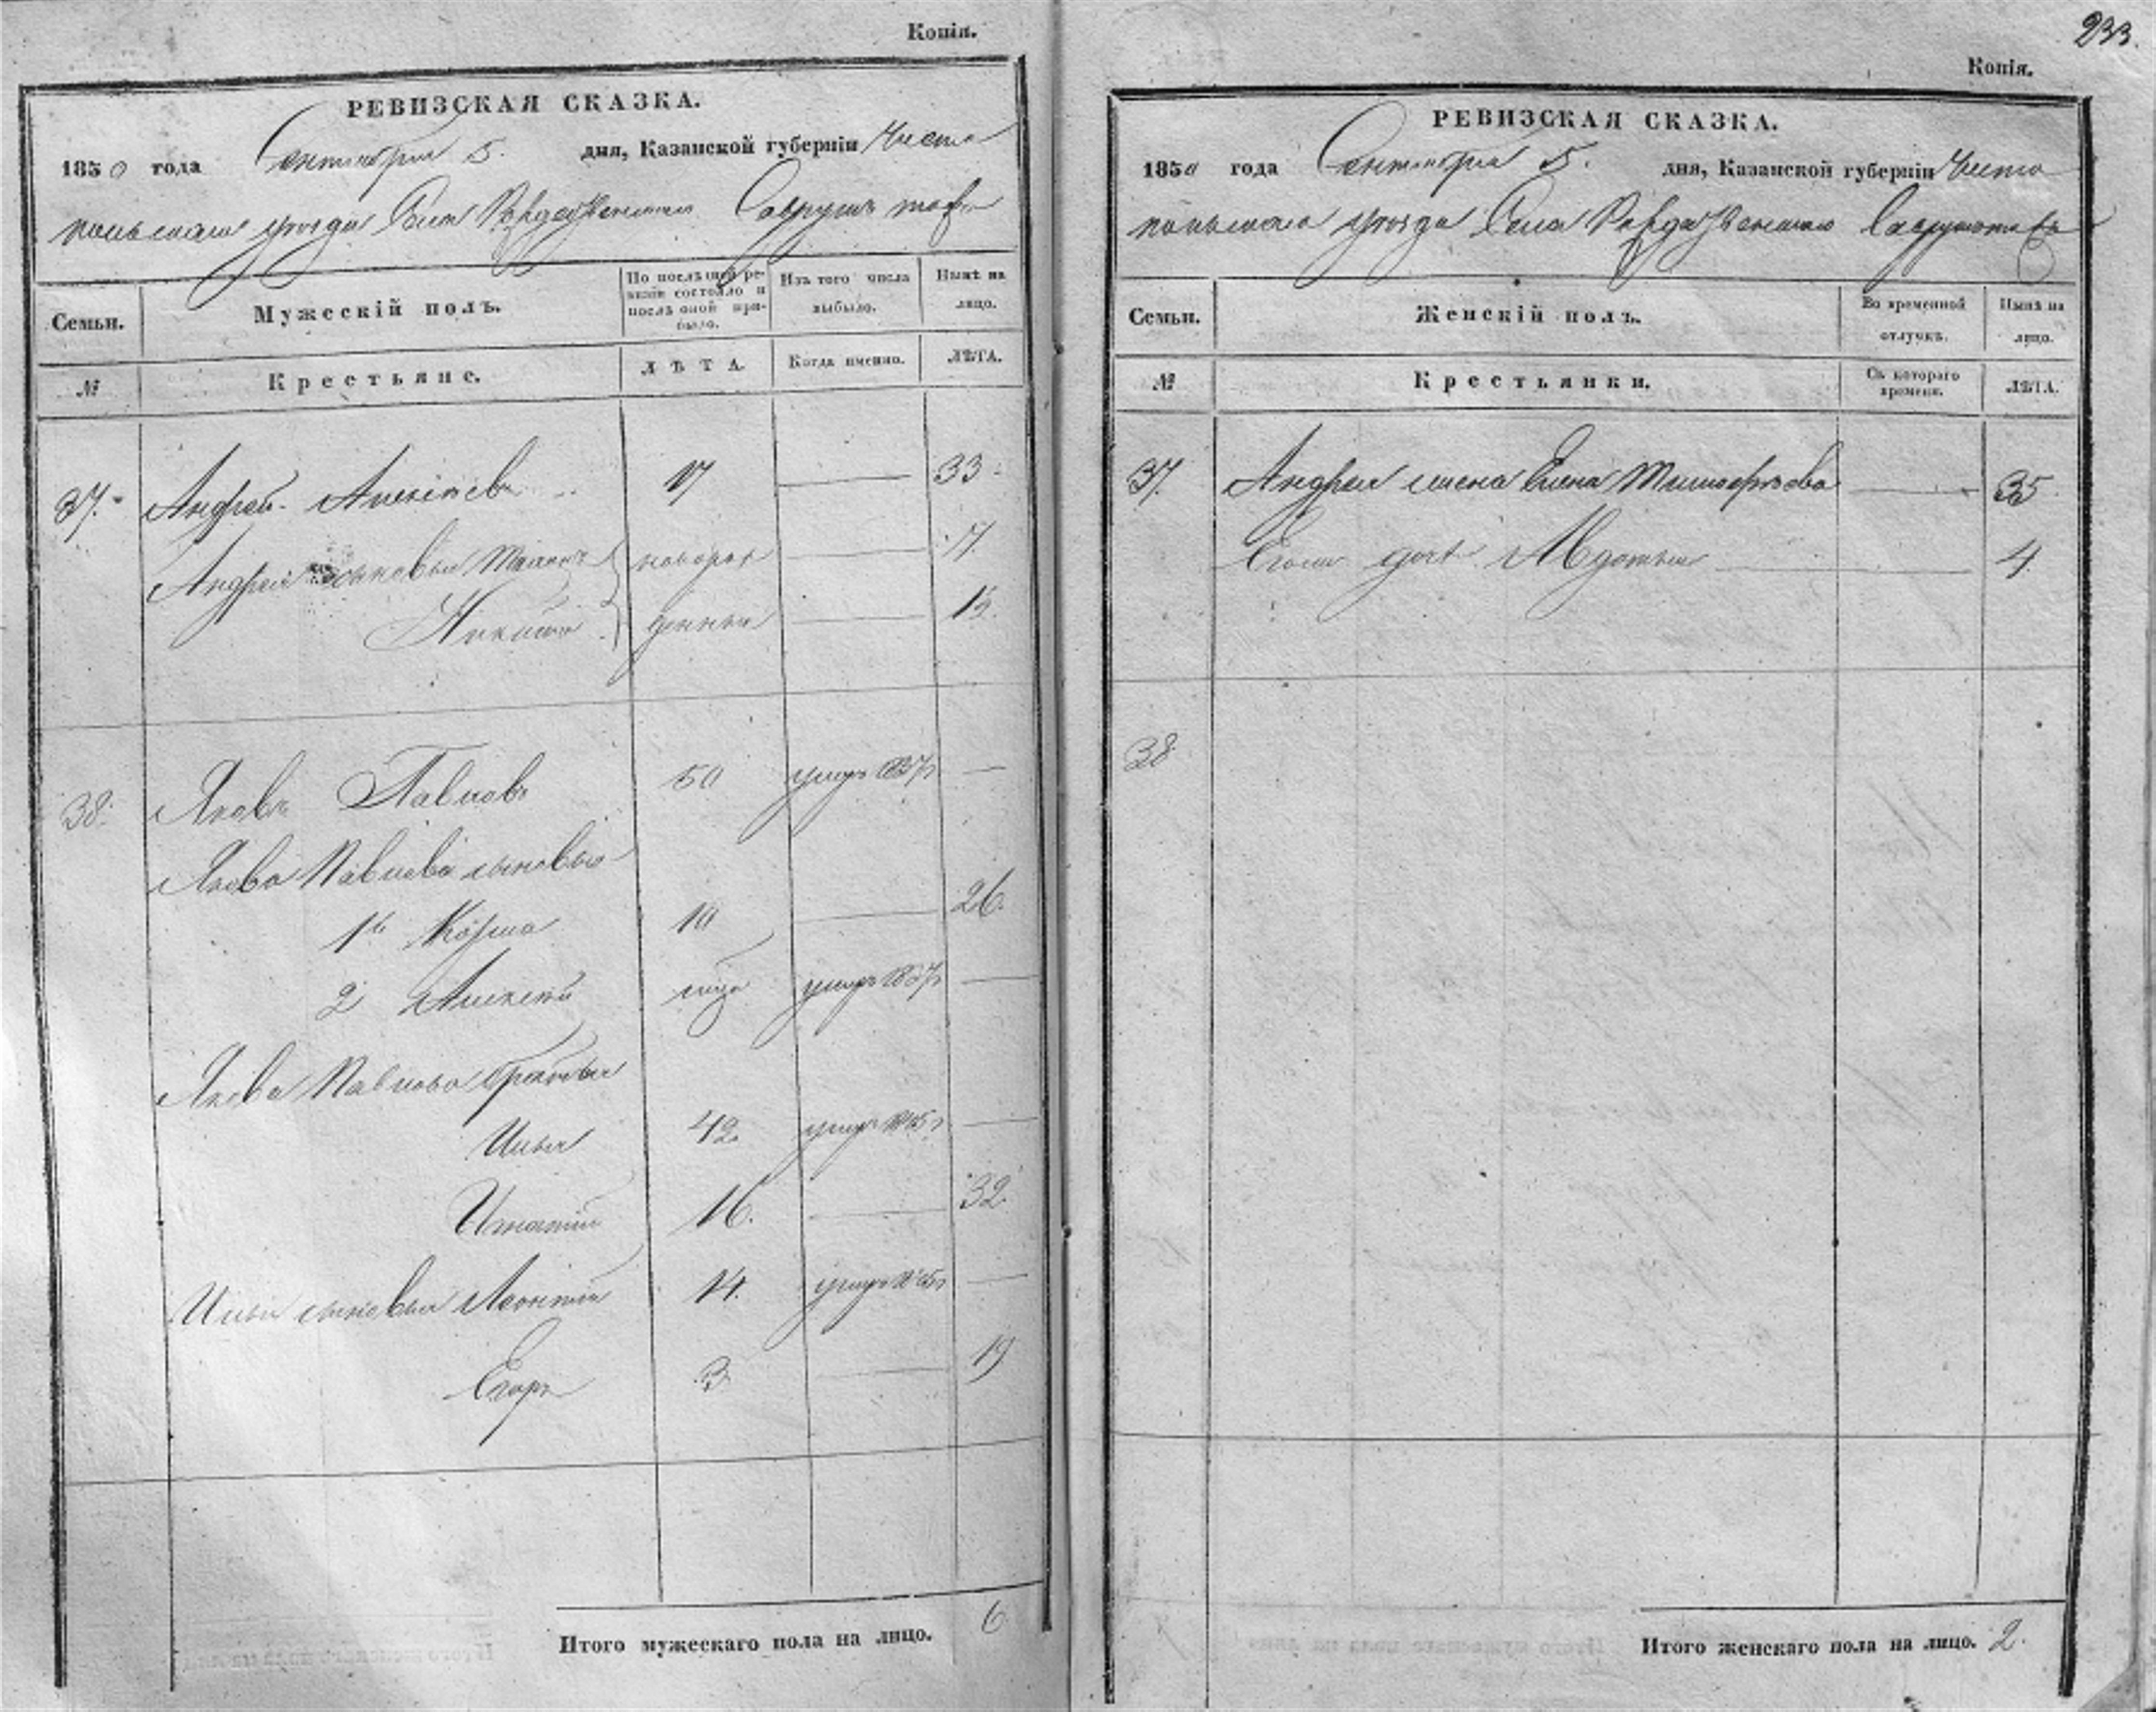 Копія.
РЕВИЗСКАЯ СКАЗКА.
1850 года Сентября 5. дня, Казанской губерніи Чисто
польскаго уѣзда Села Рождественскаго
Семьи. Мужескій полъ. По послѣдней ревизіи состояло и послѣ оной прибыло. Изъ того числа выбыло. Нынѣ на лицо.
№ Крестьяне. ЛѢТА. Когда именно. ЛѢТА.
37. Андрей Алексѣевъ 17 33
Андрея сыновья новорож 7
Никита денныя
38. Яковъ Павловъ 50 умеръ 1837 —
Якова Павлова сыновья
1й Козма 10 26.
2 Алексѣй умеръ —
Якова Павлова братья
Илья 42 умеръ —
Игнатій 16. 32.
Ильи сыновья Леонтій 14. умеръ —
Егоръ 3 19
Итого мужескаго пола на лицо. 6
233.
Копія.
РЕВИЗСКАЯ СКАЗКА.
1850 года Сентября 5. дня, Казанской губерніи Чисто
польскаго уѣзда Села Рождественскаго
Семьи. Женскій полъ. Во временной отлучкѣ. Нынѣ на лицо.
№ Крестьянки. Съ котораго времени. ЛѢТА.
37. Андрея жена Елена 35
дочь 4.
38
Итого женскаго пола на лицо. 2.